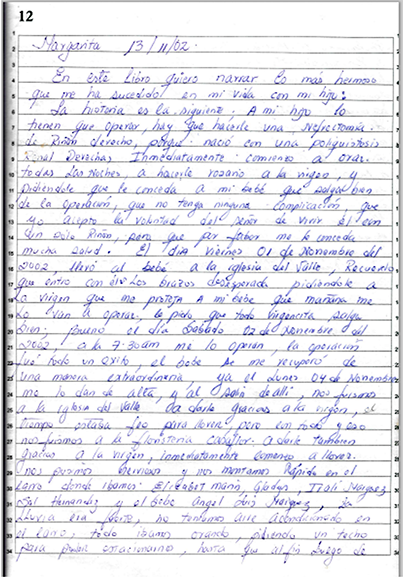 12
Margarita 13/11/02.
En este libro quiero narrar lo más hermoso
que me ha sucedido en mi vida con mi hijo:
La historia es la siguiente. A mi hijo lo
tienen que operar, hay que hacerle una Nefrectomía.
de Riñón derecho, porque nació con una poliquistosis
Renal Derecha. Inmediatamente comienzo a orar.
todas Las Noches, a hacerle rosario a la virgen, y
Pidiendole que le conceda a mi bebé que salga bien
de la operación, que no tenga ninguna complicación que
yo acepto la voluntad del señor de vivir él con
un solo Riñon, pero que por fabor me le conceda
mucha salud. El día viernes 01 de Noviembre del
2002, llevó al bebé a la iglesia del Valle, Recuerdo
que entro con los brazos desesperada pidiendole a
La virgen que me proteja A mi bebe que mañana me
Lo van a operar. le pido que todo virgencita salga
bien; bueno el día Sabado 02 de Noviembre del
2002, a la 7:30am me lo operan, la operación
fué todo un exito, el bebe se me recuperó de
una manera extraordinaria, ya el Lunes 04 de Noviembre
me lo dan de alta, y al salir de alli, nos fuimos
a la iglesia del Valle Da darle gracias a la virgen, el
tiempo estaba feo para llover, pero con todo y eso
nos fuimos a la floristeria a darle tambien
gracias a la virgen, inmediatamente comenzo a llover.
nos pusimos nerviosos y nos montamos Rápido en el
carro donde ibamos: Elizabet Marin, Gladys, Itali Marquez
Hernandez y el bebe Angel Luis Marquez, La
lluvia era fuerte, no teniamos aire acondicionado en
el carro, todo ibamos orando, pidiendo un techo
para poder estacionarnos, hasta que al fin Luego de